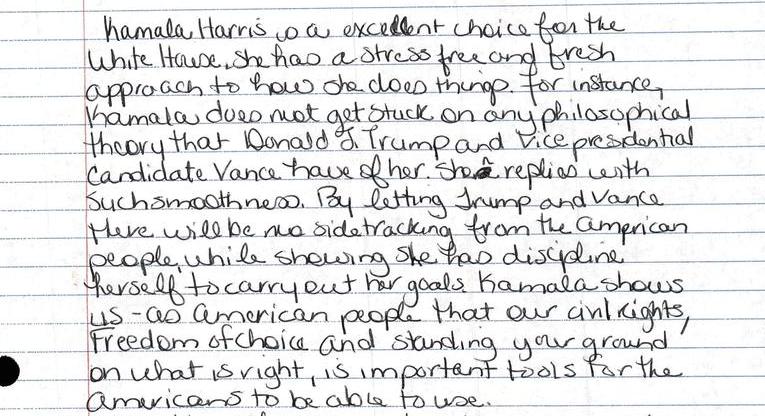 Kamala Harris is a excellent choice for the
White House, she has a stress free and fresh
approach to how she does things. For instance,
Kamala does not get stuck on any philosophical
theory that Donald J. Trump and Vice presidential
Candidate Vance have of her. She replies with
such smoothness. By letting Trump and Vance
there will be no sidetracking from the American
people, while showing she has discipline
herself to carry out her goals. Kamala shows
us - as American people that our civil rights,
Freedom of choice and standing your ground
on what is right, is important tools for the
Americans to be able to use.